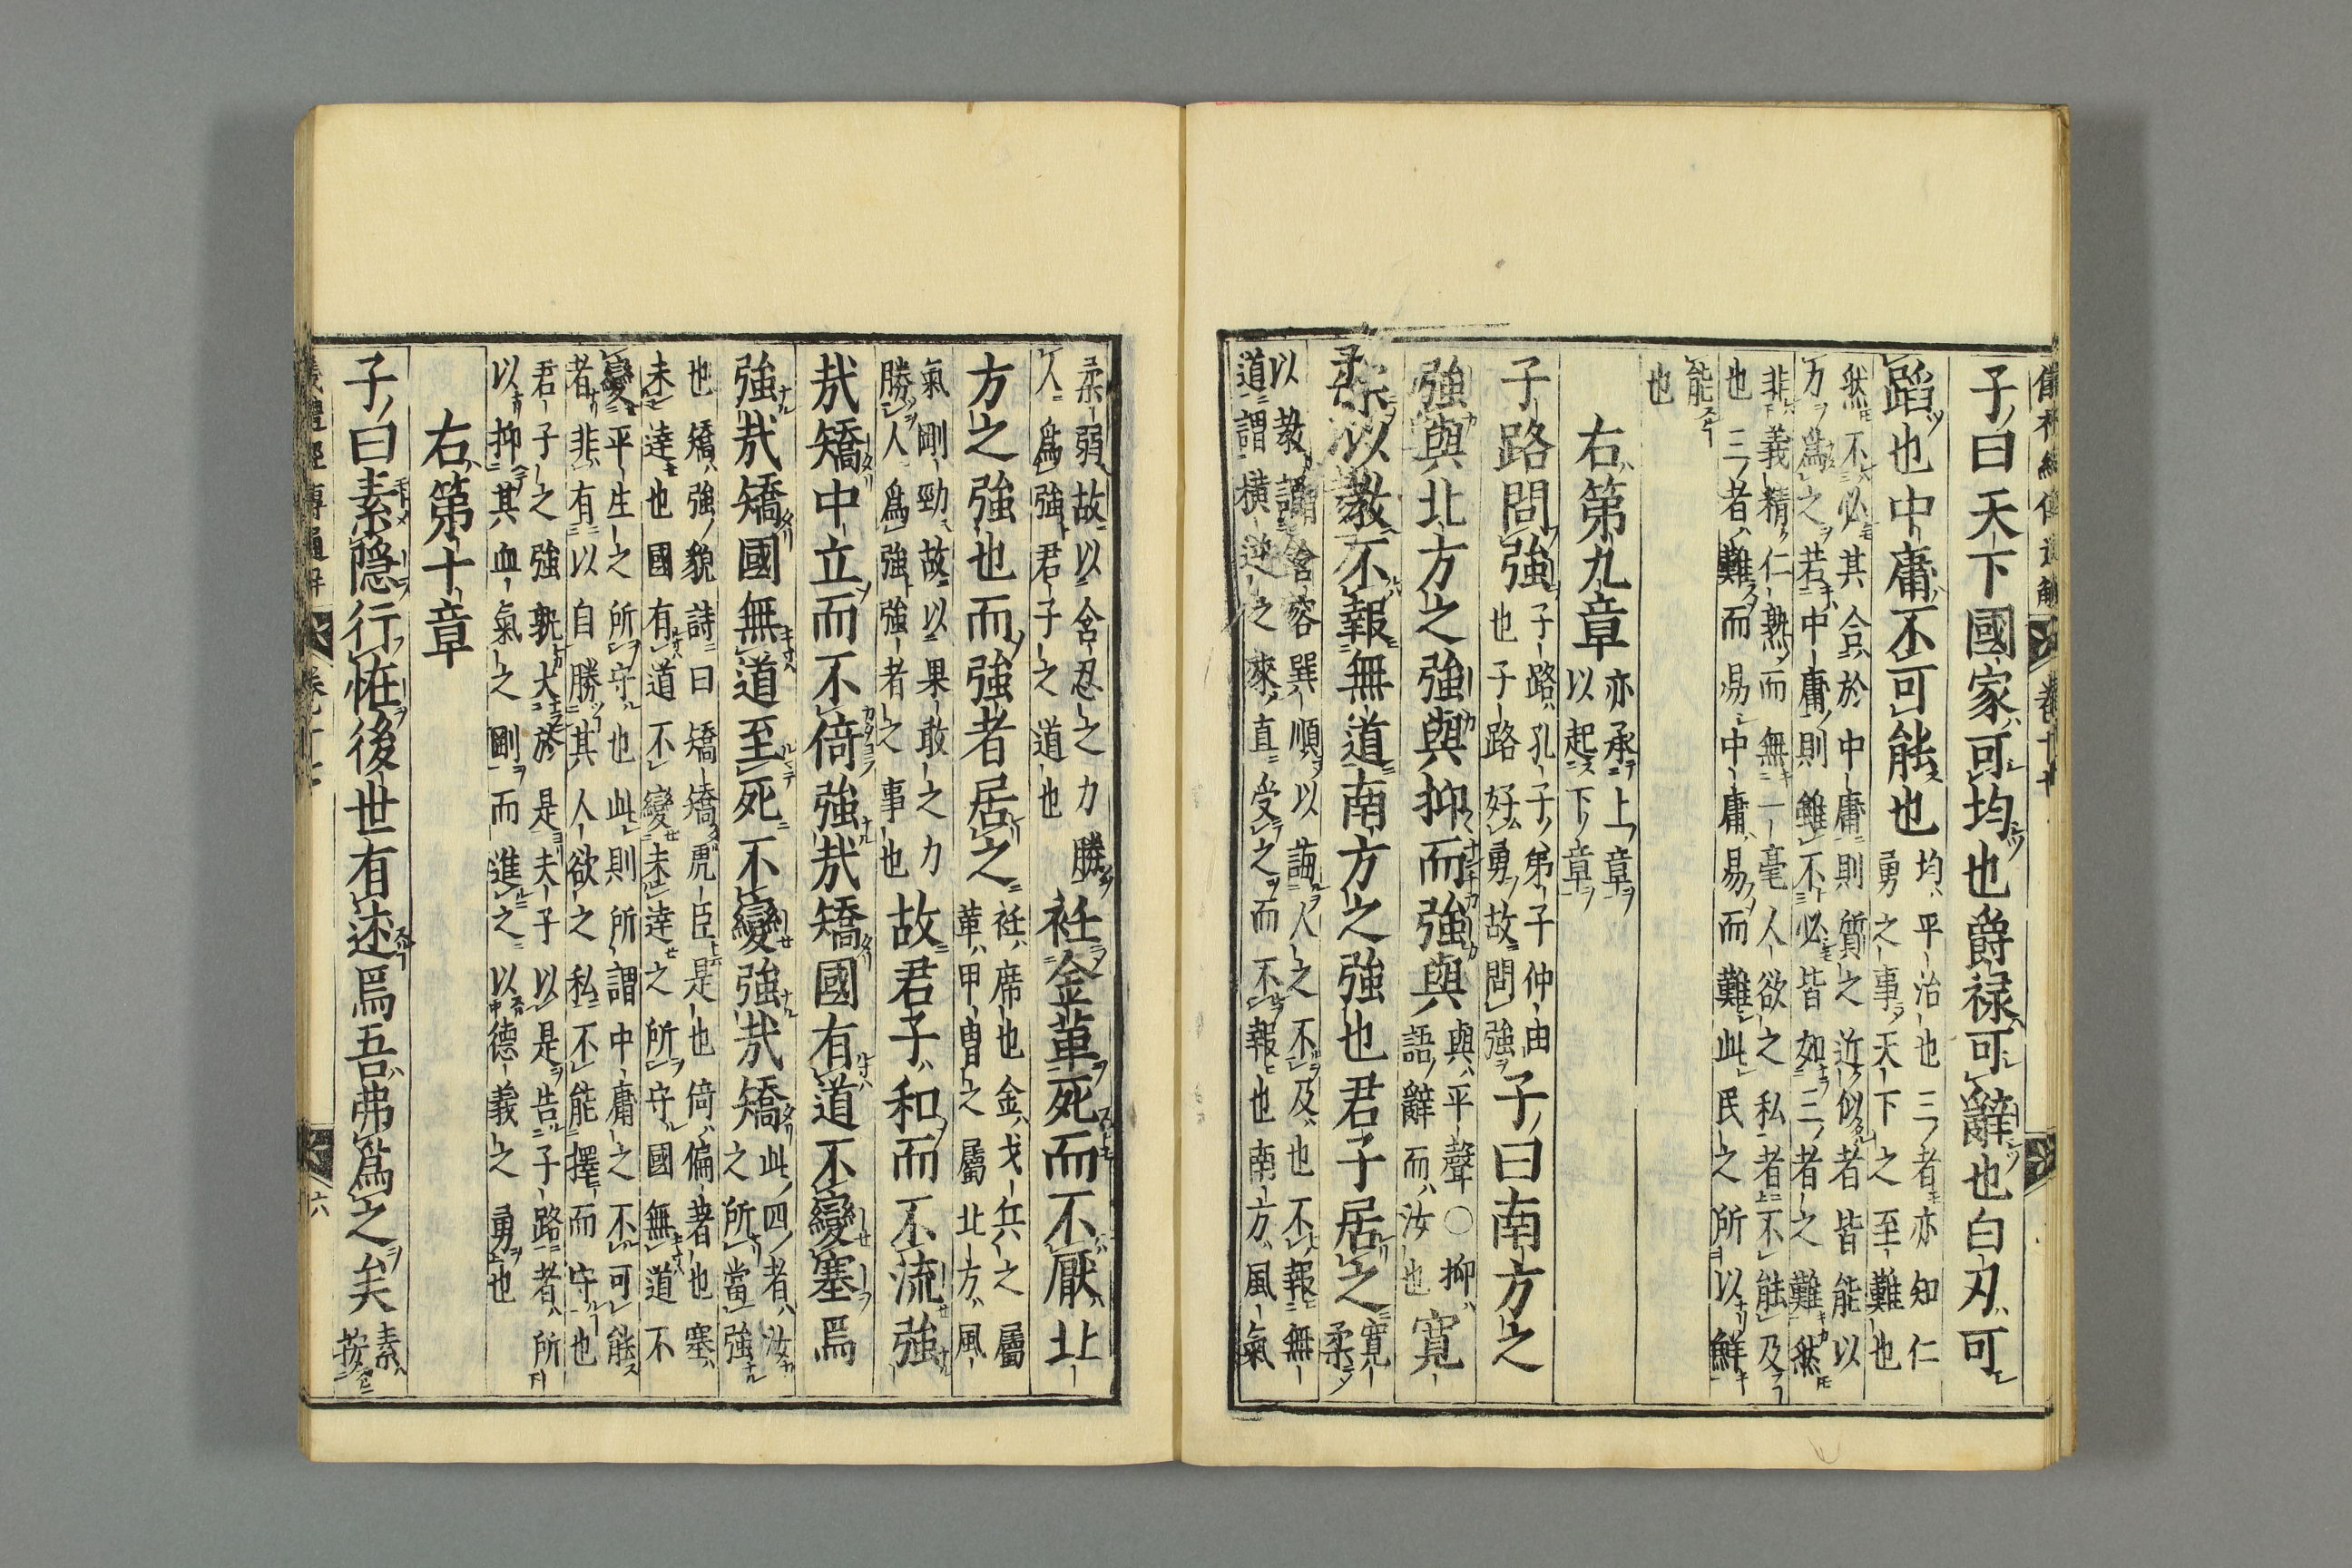 子曰天下國家可均也爵禄可辭也白刃可
蹈也中庸不可能也
均平治也三者亦知仁
勇之事天下之至難也
然不必其合於中庸則質之近似者皆能以
力爲之若中庸則雖不必皆如三者之難然
非義精仁熟而無一毫人欲之私者不能及
也三者難而易中庸易而難此民之所以鮮
能
也
右第九章
亦承上章
以起下章
子路問強
子路孔子弟子仲由
也子路好勇故問強
子曰南方之
強與北方之強與抑而強與
與平聲○抑
語辭而汝也
寛
柔以教不報無道南方之強也君子居之
寛
柔
以教謂含容巽順以誨人之不及也不報無
道謂横逆之來直受之而不報也南方風氣
柔弱故以含忍之力勝
人爲強君子之道也
衽金革死而不厭北
衽席也金戈兵之屬
革甲冑之屬北方風
方之強也而強者居之
氣剛勁故以果敢之力
勝人爲強強者之事也
故君子和而不流強
哉矯中立而不倚強哉矯國有道不變塞焉
強哉矯國無道至死不變強哉矯
此四者汝
之所當強
也矯強貌詩曰矯矯虎臣是也倚偏著也塞
未達也國有道不變未達之所守國無道不
變平生之所守也此則所謂中庸之不可能
者非有以自勝其人欲之私不能擇而守也
君子之強孰大於是夫子以是告子路者所
以抑其血氣之剛而進之以德義之勇也
右第十章
子曰素隱行恠後世有述焉吾弗爲之矣
素
按
六